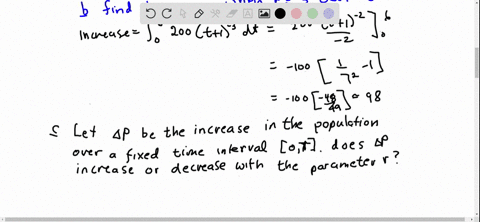 b find
Increase = ∫₀⁶ 200 (t+1)⁻³ dt = 200 (t+1)⁻² / -2 ]₀⁶
= -100 [ 1/7² - 1 ]
= -100 [ -48/49 ] ≈ 98
c Let ΔP be the increase in the population
over a fixed time interval [0,T]. does ΔP
increase or decrease with the parameter r?